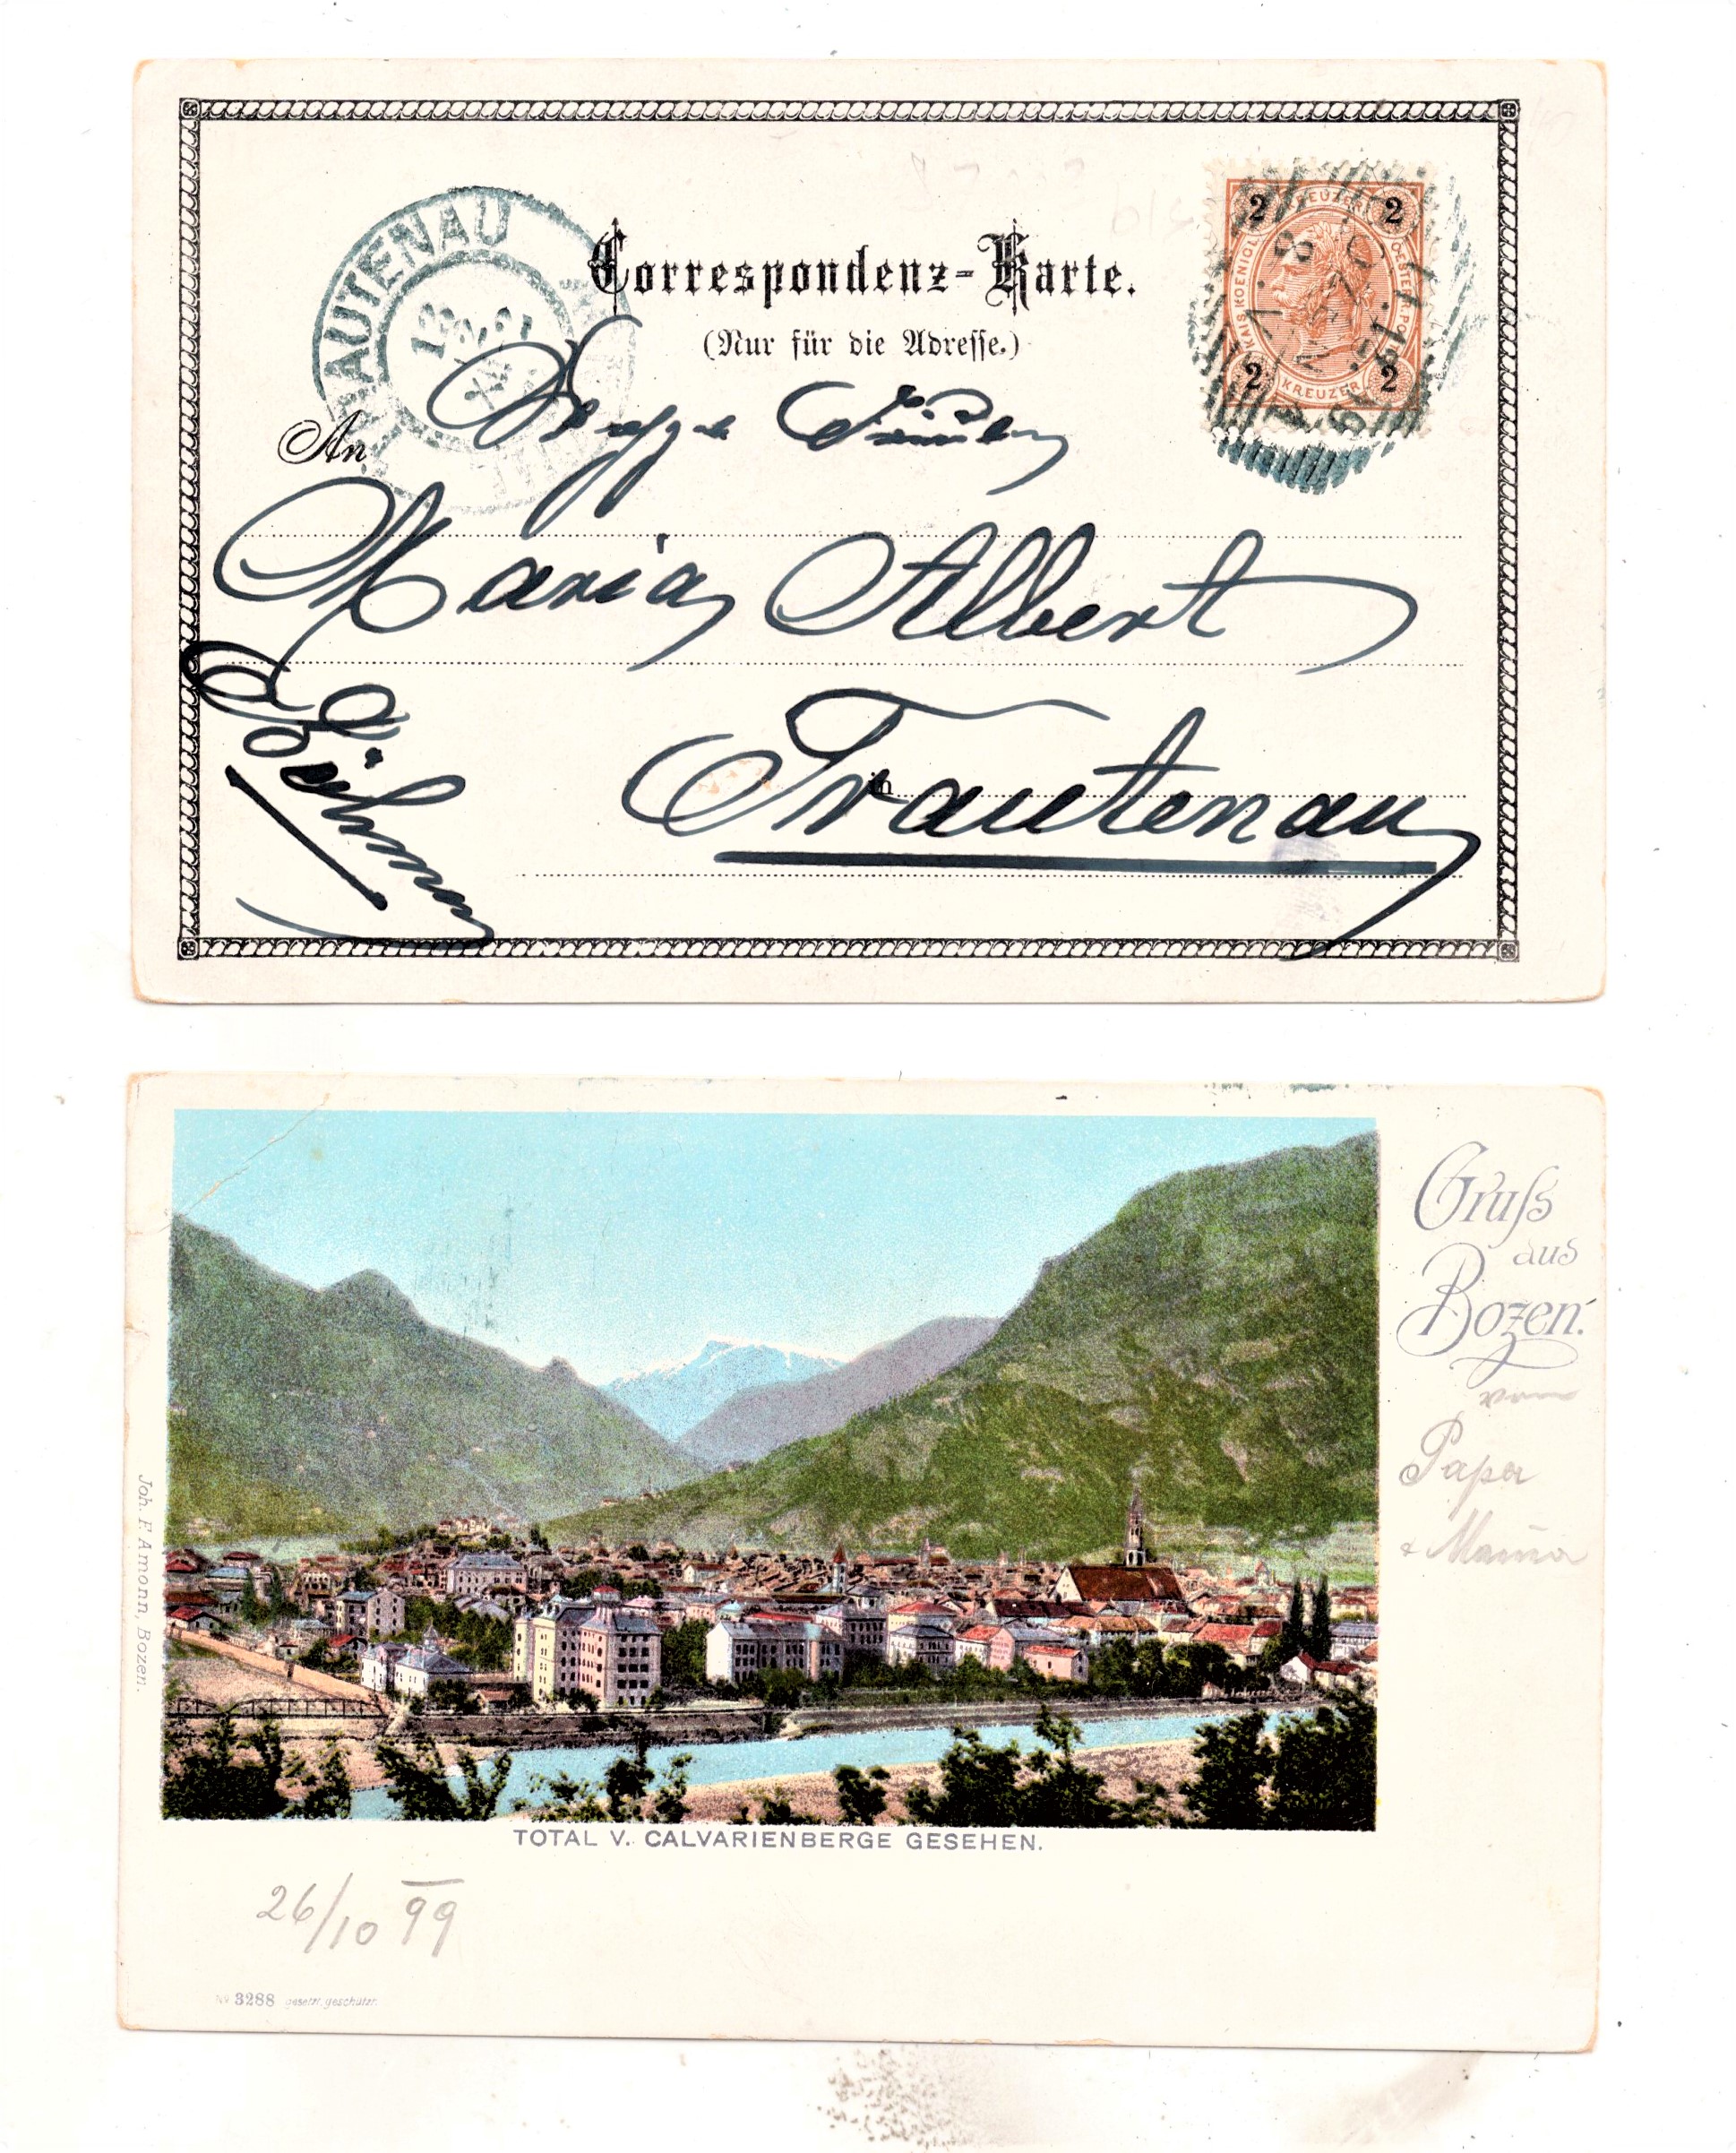 TRAUTENAU
Correspondenz-Karte.
(Nur für die Adresse.)
2 KREUZER 2
KAIS.KOENIGL. OESTERR.POST
2 KREUZER 2
An
Maria Albert
in
Trautenau
Böhmen
Gruſs
aus
Bozen.
von
Papa
+ Mama
Joh. F. Amonn, Bozen.
TOTAL V. CALVARIENBERGE GESEHEN.
26/10 99
No 3288 gesetzl. geschützt.